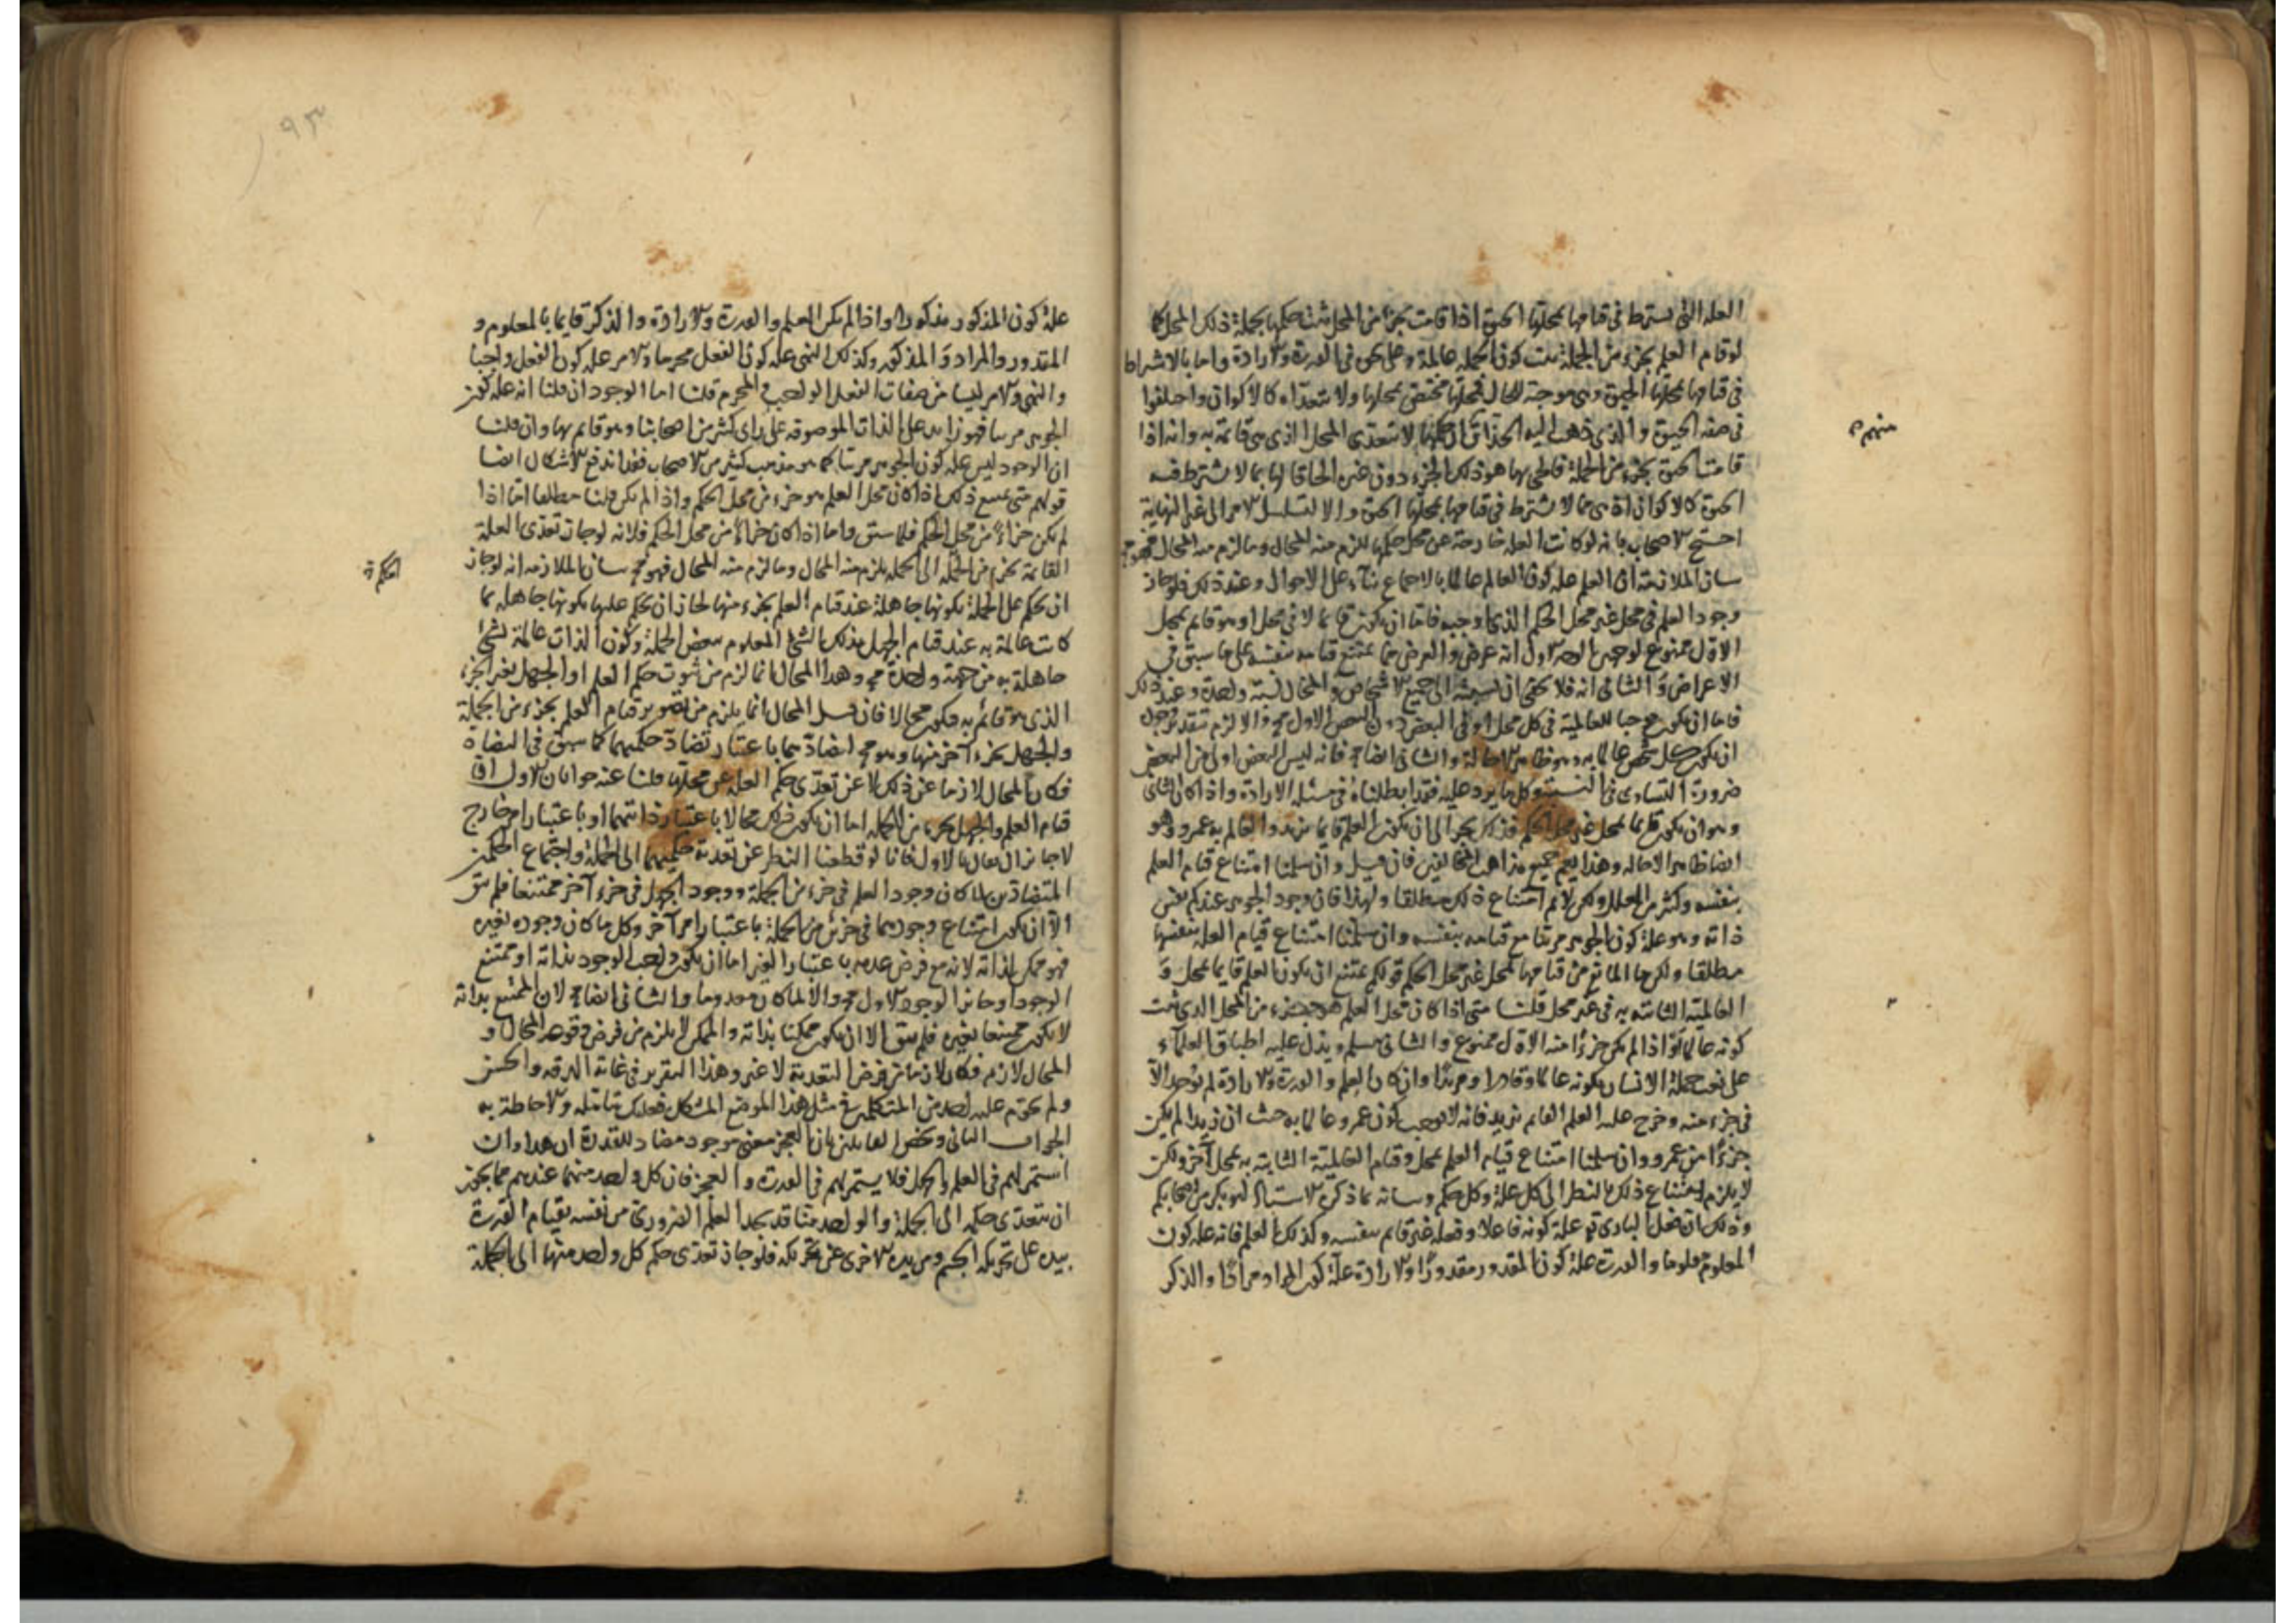 العلة التى يشترط فى قيامها بمحلها الحيوة اذا قامت بجزء من المحل ثبت حكمها بجملة ذلك المحل كما
لو قام العلم بجزء من الجملة ثبت كون الجملة عالمة وعلى نحوه فى القدرة والارادة واما بالاشتراط
فى قيامها بمحلها الحيوة وهى موجبة للحال فحكمها مختص بمحلها ولا يتعداه كالاكوان واختلفوا
فى صفة الحيوة والذى ذهب اليه الحذاق ان حكمها لا يتعدى المحل الذى هى قائمة به وانه اذا
قامت الحيوة بجزء من الجملة فالحى بها هو ذلك الجزء دون غيره الحاقا لها بما لا يشترط فيه
الحيوة كالاكوان اذ هى مما لا يشترط فى قيامها بمحلها الحيوة والا لتسلسل الامر الى غير النهاية
احتج الاصحاب بانه لو كانت العلة خارجة عن محل حكمها للزم منه المحال وما لزم منه المحال فهو مح
بيان الملازمة ان العلم علة كون العالم عالما بالاجماع بناء على الاحوال وعند ذلك فلو جاز
وجود العلم فى محل غير محل الحكم الذى اوجبه فاما ان يكون قائما لا فى محل او هو قائم بمحل
الاول ممنوع لوجهين الاول انه عرض والعرض مما يمتنع قيامه بنفسه على ما سبق فى
الاعراض والثانى انه فلا يخفى ان نسبته الى جميع الاشخاص والمحال نسبة واحدة وعند ذلك
فاما ان يكون موجبا للعالمية فى كل محل او فى البعض دون البعض الاول مح والا لزم
ان يكون كل شخص عالما به وهو ظاهر الاحالة والثانى ايضا مح فانه ليس البعض اولى من البعض
ضرورة التساوى فى النسبة وكل ما يرد عليه فقد ابطلناه فى مسئلة الارادة واذا كان الثانى
وهو ان يكون قائما بمحل غير محل الحكم فذلك يجر الى ان يكون العلم قائما بزيد والعالم به عمرو وهو
ايضا ظاهر الاحالة وهذا يعم جميع مذاهب المخالفين فان قيل وان سلمنا امتناع قيام العلم
بنفسه وكثير من العلل ولكن لا نم امتناع ذلك مطلقا ولهذا فان وجود الجوهر عندكم نفس
ذاته وهو علة كون الجوهر مرئيا مع قيامه بنفسه وان سلمنا امتناع قيام العلة بنفسها
مطلقا ولكن ما المانع من قيامها بمحل غير محل الحكم قولكم يمتنع ان يكون العلم قائما بمحل و
العالمية الثابتة به فى غير محل قلنا متى اذا كان محل العلم هو جزء من المحل الذى ثبت
كونه عالما او اذا لم يكن جزءا منه الاول ممنوع والثانى مسلم ويدل عليه اطباق العلماء
على نعت جملة الانسان بكونه عالما وقادرا ومريدا وان كان العلم والقدرة والارادة لم توجد الا
فى جزء منه وخرج عليه العلم القائم بزيد فانه لا يوجب كون عمرو عالما به حيث ان زيدا لم يكن
جزءا من عمرو وان سلمنا امتناع قيام العلم بمحل وقيام العالمية الثابتة به بمحل آخر ولكن
لا يلزم امتناع ذلك بالنظر الى كل علة وكل حكم وبيانه بما ذكره الاستاذ ابو بكر من اصحابكم
وذلك ان فعل البارى تع علة كونه فاعلا وفعله غير قائم بنفسه وكذلك العلم فانه علة كون
المعلوم معلوما والقدرة علة كون المقدور مقدورا والارادة علة كون المراد مرادا والذكر
منهم ن
علة كون المذكور مذكورا واذا لم يكن العلم والقدرة والارادة والذكر قائما بالمعلوم و
المقدور والمراد والمذكور وكذلك النهى علة كون الفعل محرما والامر علة كون الفعل واجبا
والنهى والامر ليسا من صفات الفعل الواجب والمحرم قلنا اما الوجود ان قلنا انه علة كون
الجوهر مرئيا فهو زايد على الذات الموصوفة على راى كثير من اصحابنا وهو قائم بها وان قلنا
ان الوجود ليس علة كون الجوهر مرئيا كما هو مذهب كثير من الاصحاب فقد اندفع الاشكال ايضا
قولهم متى يمتنع ذلك اذا كان محل العلم هو جزء من محل الحكم واذا لم يكن قلنا مطلقا اما اذا
لم يكن جزاءً من محل الحكم فلما سبق واما اذا كان جزاءً من محل الحكم فلانه لو جاز تعدى العلة
القائمة بجزء من الجملة الى الجملة يلزم منه المحال وما لزم منه المحال فهو مح بيان الملازمة انه لو جاز
ان يحكم على الجملة بكونها جاهلة عند قيام العلم بجزء منها لجاز ان يحكم عليها بكونها جاهلة بما
كانت عالمة به عند قيام الجهل بذلك الشئ المعلوم ببعض الجملة وكون الذات عالمة بشئ
جاهلة به من جهة واحدة مح وهذا المحال انما لزم من ثبوت حكم العلم او الجهل لغير الجزء
الذى هو قائم به فيكون محالا فان قيل المحال انما يلزم من تصوير قيام العلم بجزء من الجملة
والجهل بجزء آخر منها وهو مح لتضادهما باعتبار تضاد حكميهما كما سبق فى التضاد
فكان المحال لازما عن ذلك لا عن تعدى حكم العلة عن محلها قلنا عنه جوابان الاول ان
قيام العلم والجهل بجزء من الجملة اما ان يكون ذلك محالا باعتبار ذاتيهما او باعتبار امر خارج
لا جائز ان يقال بالاول فانا لو قطعنا النظر عن تعدية حكميهما الى الجملة واجتماع الحكمين
المتضادين لما كان وجود العلم فى جزء من الجملة ووجود الجهل فى جزء آخر ممتنعا فلم يبق
الا ان يكون امتناع وجودهما فى جزئين من الجملة باعتبار امر آخر وكل ما كان وجوده لغيره
فهو ممكن لذاته لانه مع فرض عدمه باعتبار الغير اما ان يكون واجب الوجود بذاته او ممتنع
الوجود او جائز الوجود الاول مح والا لما كان معدوما والثانى ايضا مح لان الممتنع بذاته
لا يكون ممتنعا بغيره فلم يبق الا ان يكون ممكنا بذاته والممكن لا يلزم من فرض وقوعه المحال و
المحال لازم فكان لازما من فرض التعدية لا غير وهذا التقرير فى غاية الدقة والحسن
ولم يحم عليه احد من المتكلمين فى مثل هذا الموضع المشكل فعليك بتامله والاحاطة به
الجواب الثانى ويخص القائلين بان العجز معنى موجود مضاد للقدرة ان هذا وان
استمر لهم فى العلم والجهل فلا يستمر لهم فى القدرة والعجز فان كل واحد منهما عندهم مما يجوز
ان يتعدى حكمه الى الجملة والواحد منا قد يجد العلم الضرورى من نفسه بقيام القدرة
بيده على تحريك الجسم ومن يده الاخرى عن تحريكه فلو جاز تعدى حكم كل واحد منهما الى الجملة
الحكم ن
٩٣